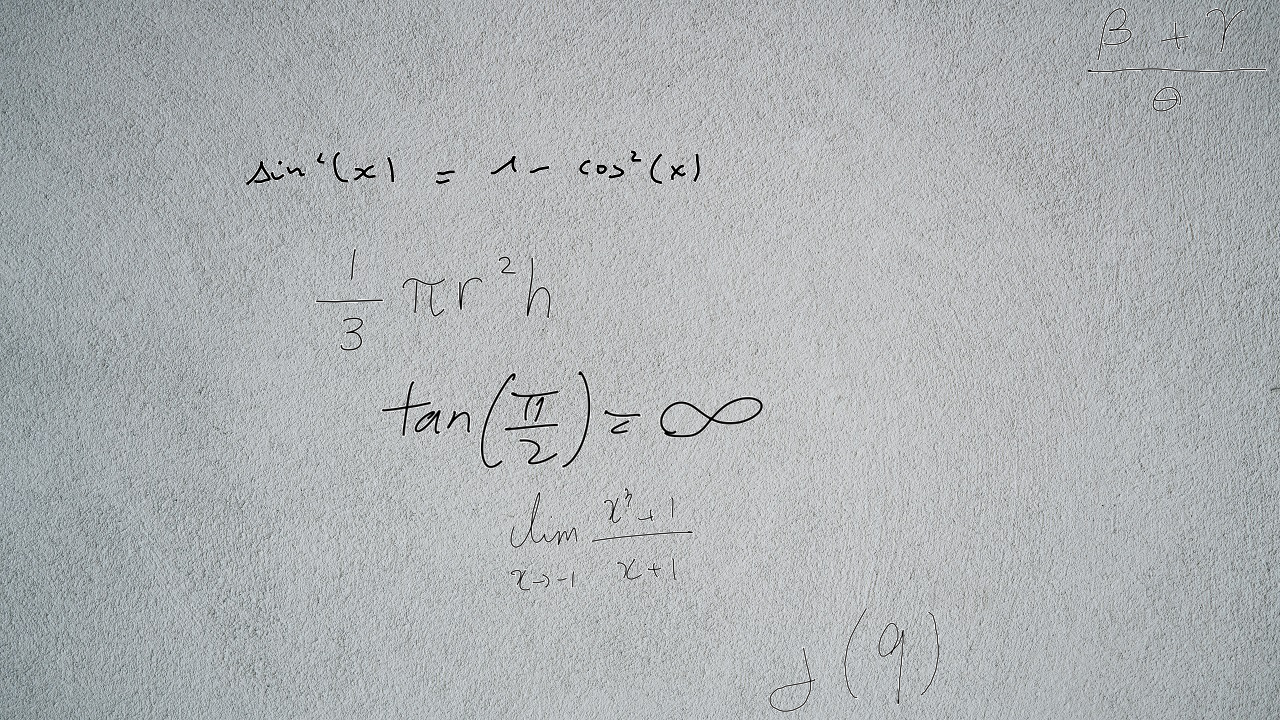 \frac{\beta + \gamma}{\theta}
sin²(x) = 1 - cos²(x)
\frac{1}{3} πr²h
tan(\frac{π}{2}) = ∞
\lim_{x→-1} \frac{x³+1}{x+1}
J(q)